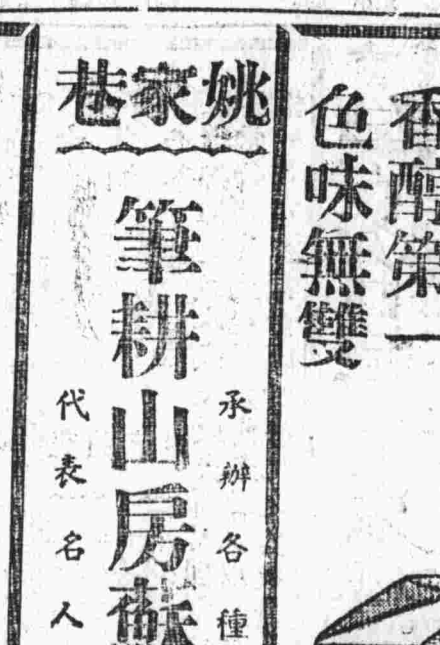 香醇第一
色味無雙
姚家巷
承辦各種
筆耕山房蘇
代表名人